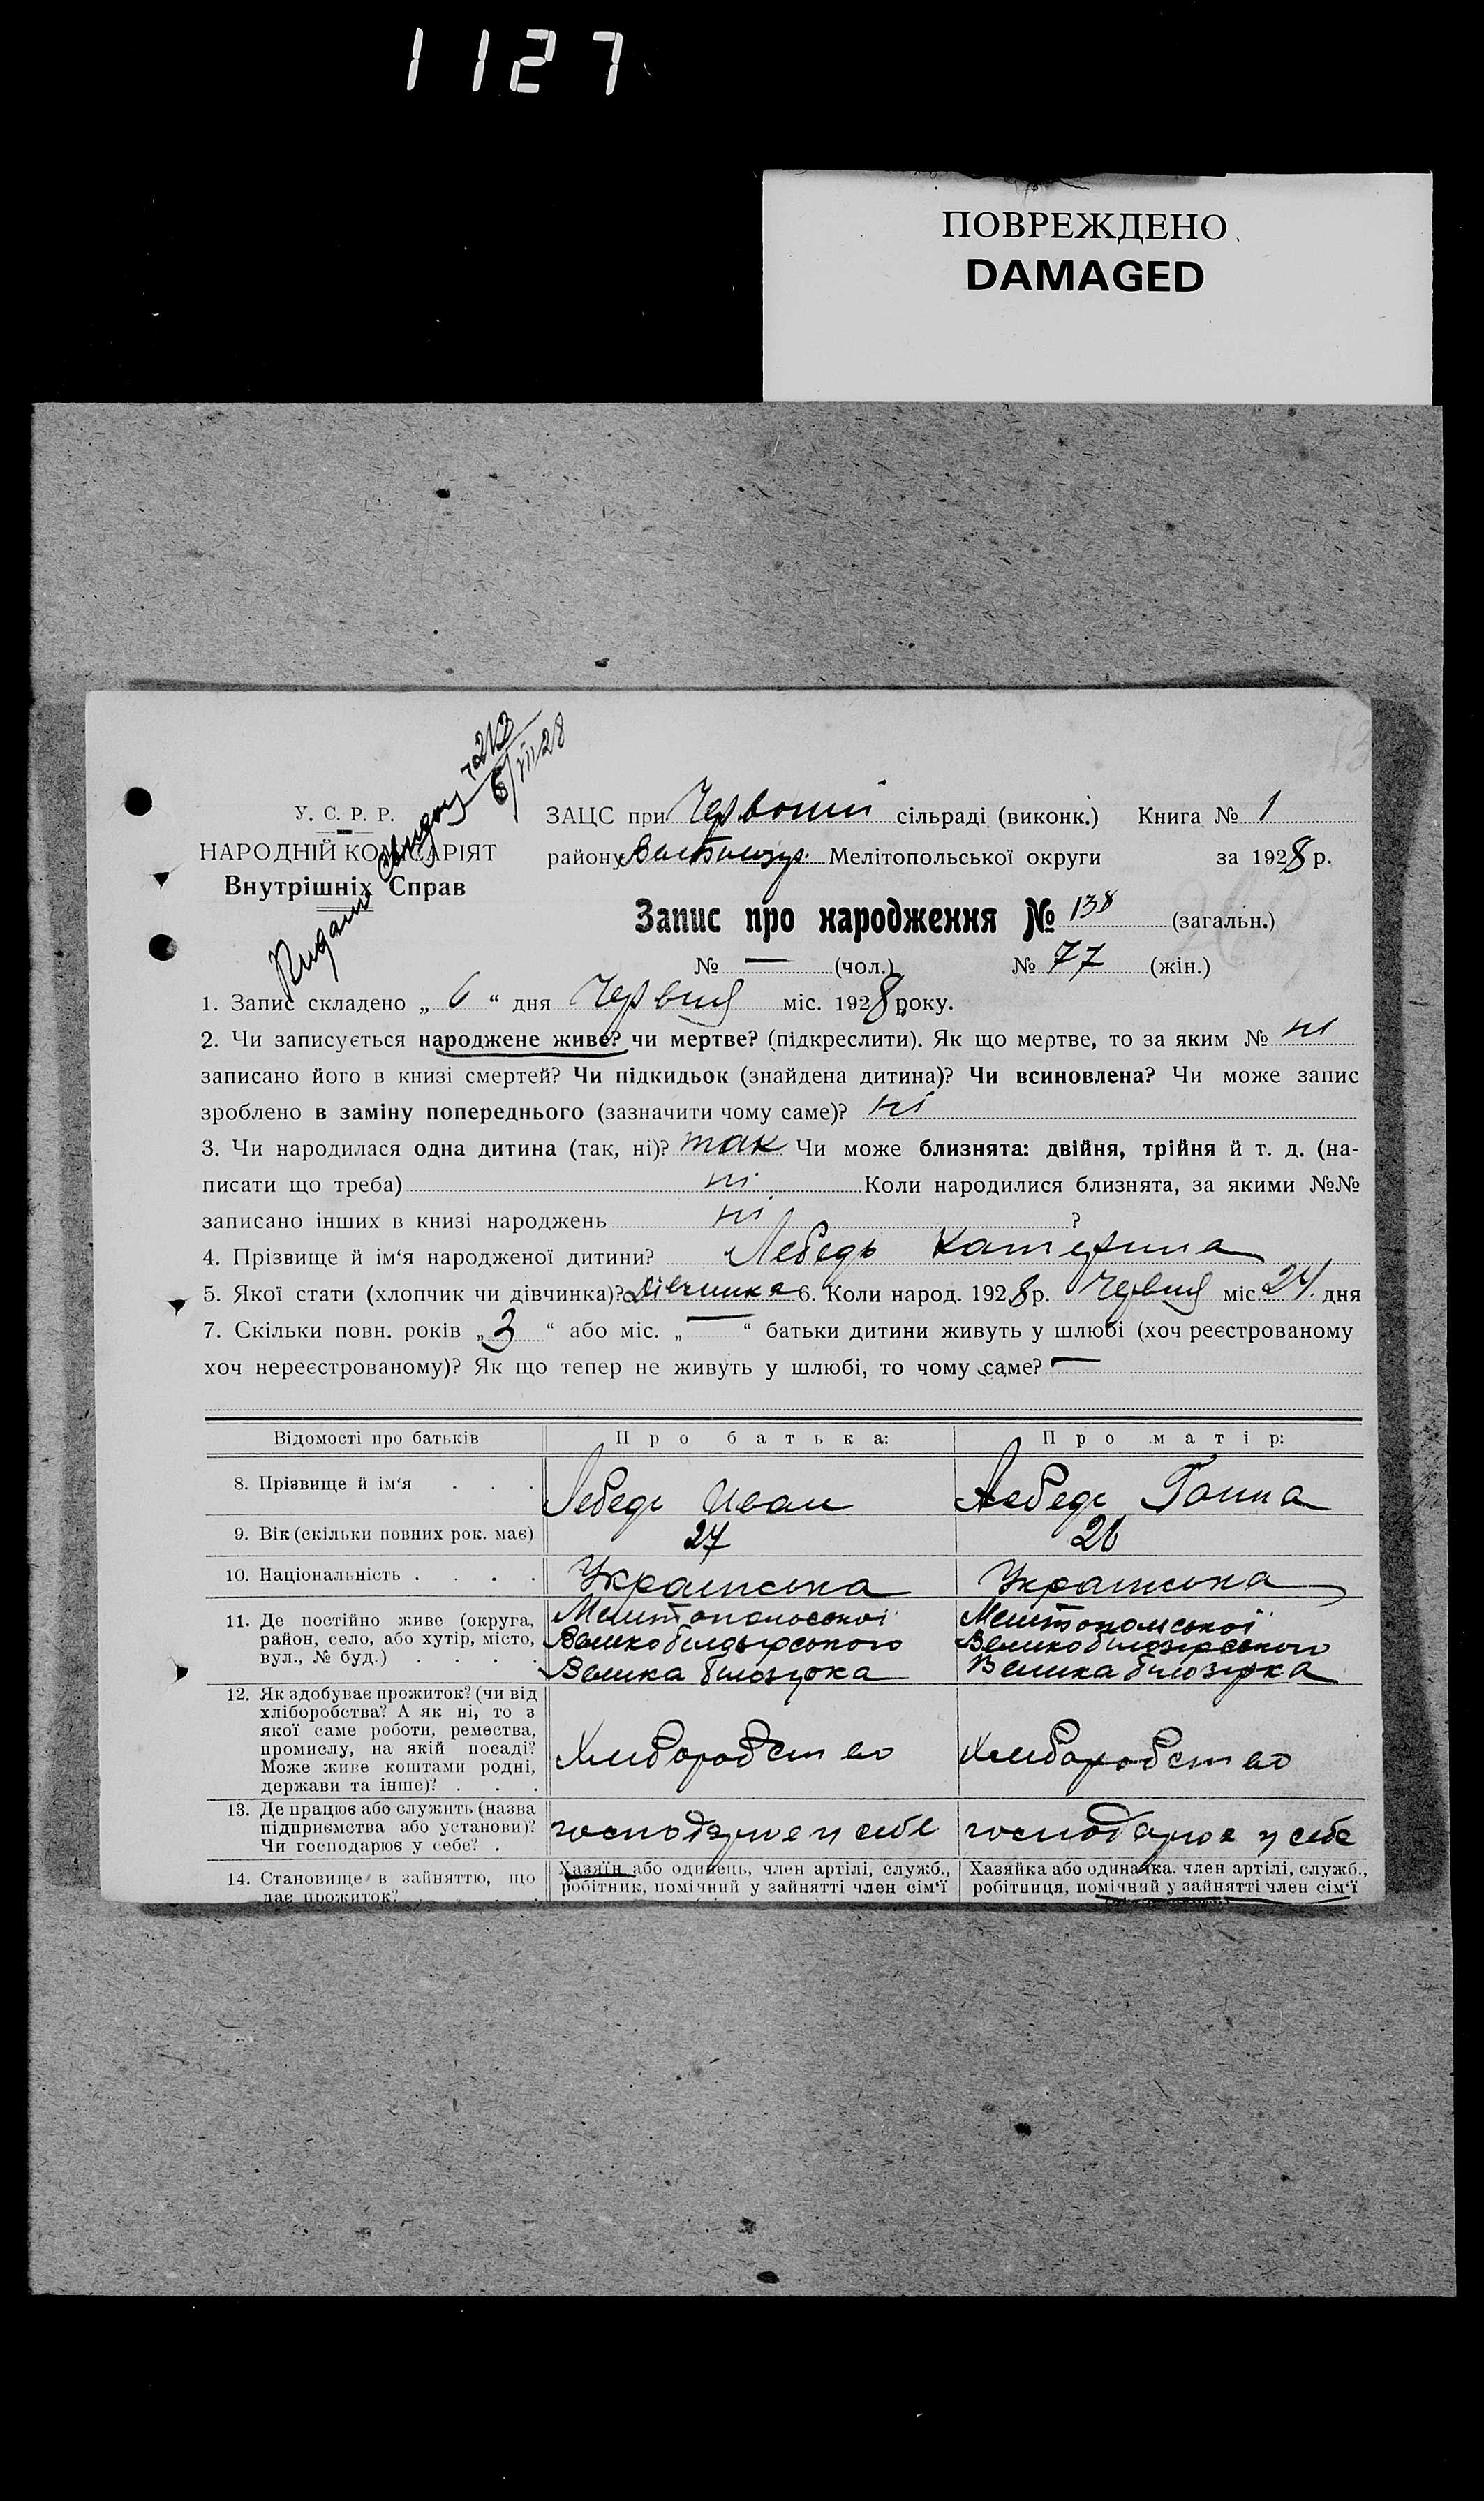 1127
ПОВРЕЖДЕНО
DAMAGED
Видано
213
6/VII 28
У. С. Р. Р.
НАРОДНІЙ КОМІСАРІЯТ
Внутрішніх Справ
ЗАЦС при Червоній сільраді (виконк.) Книга № 1
району Мелітопольської округи за 1928 р.
Запис про народження № 138 (загальн.)
№ — (чол.) № 77 (жін.)
1. Запис складено „ 6 “ дня Червня міс. 1928 року.
2. Чи записується народжене живе? чи мертве? (підкреслити). Як що мертве, то за яким № ні
записано його в книзі смертей? Чи підкидьок (знайдена дитина)? Чи всиновлена? Чи може запис
зроблено в заміну попереднього (зазначити чому саме)? ні
3. Чи народилася одна дитина (так, ні)? так Чи може близнята: двійня, трійня й т. д. (на-
писати що треба) ні Коли народилися близнята, за якими №№
записано інших в книзі народжень ні ?
4. Прізвище й ім‘я народженої дитини? Лебедь Катерина
5. Якої стати (хлопчик чи дівчинка)? Дівчинка 6. Коли народ. 1928 р. Червня міс. 24 дня
7. Скільки повн. років „ 3 “ або міс. „ — “ батьки дитини живуть у шлюбі (хоч реєстрованому
хоч нереєстрованому)? Як що тепер не живуть у шлюбі, то чому саме? —
Відомості про батьків Про батька: Про матір:
8. Прізвище й ім‘я . . . Лебедь Иван Лебедь Ганна
9. Вік (скільки повних рок. має) 27 26
10. Національність . . . . Українська Українська
11. Де постійно живе (округа, Мелітопольської Мелітопольської
район, село, або хутір, місто, Великобілозірського Великобілозірського
вул., № буд.) . . . . Велика білозірка Велика білозірка
12. Як здобуває прожиток? (чи від
хліборобства? А як ні, то з
якої саме роботи, ремества,
промислу, на якій посаді? Хліборобство Хліборобство
Може живе коштами родні,
держави та інше)? . . .
13. Де працює або служить (назва
підприємства або установи)? господарює у себе господарює у себе
Чи господарює у себе? .
14. Становище в зайняттю, що Хазяїн або одинець, член артілі, служб., Хазяйка або одиначка. член артілі, служб.,
дає прожиток? робітник, помічний у зайнятті член сім‘ї робітниця, помічний у зайнятті член сім‘ї